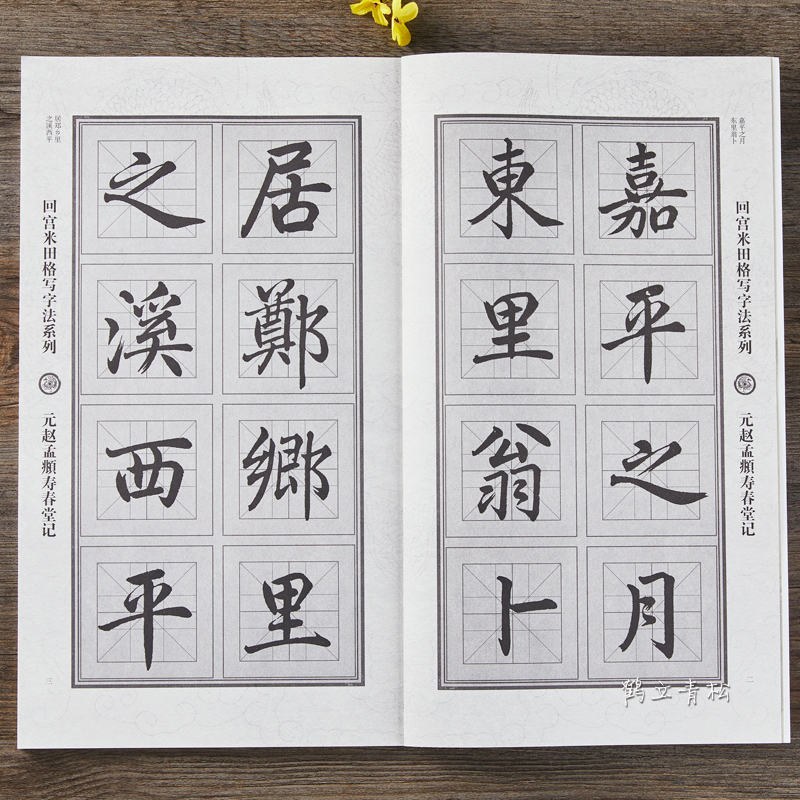 嘉平之月
东里翁卜
回宫米田格写字法系列
元赵孟頫寿春堂记
嘉平之月
東里翁卜
二
居郑乡里
之溪西平
回宫米田格写字法系列
元赵孟頫寿春堂记
居鄭鄉里
之溪西平
三
鹤立青松